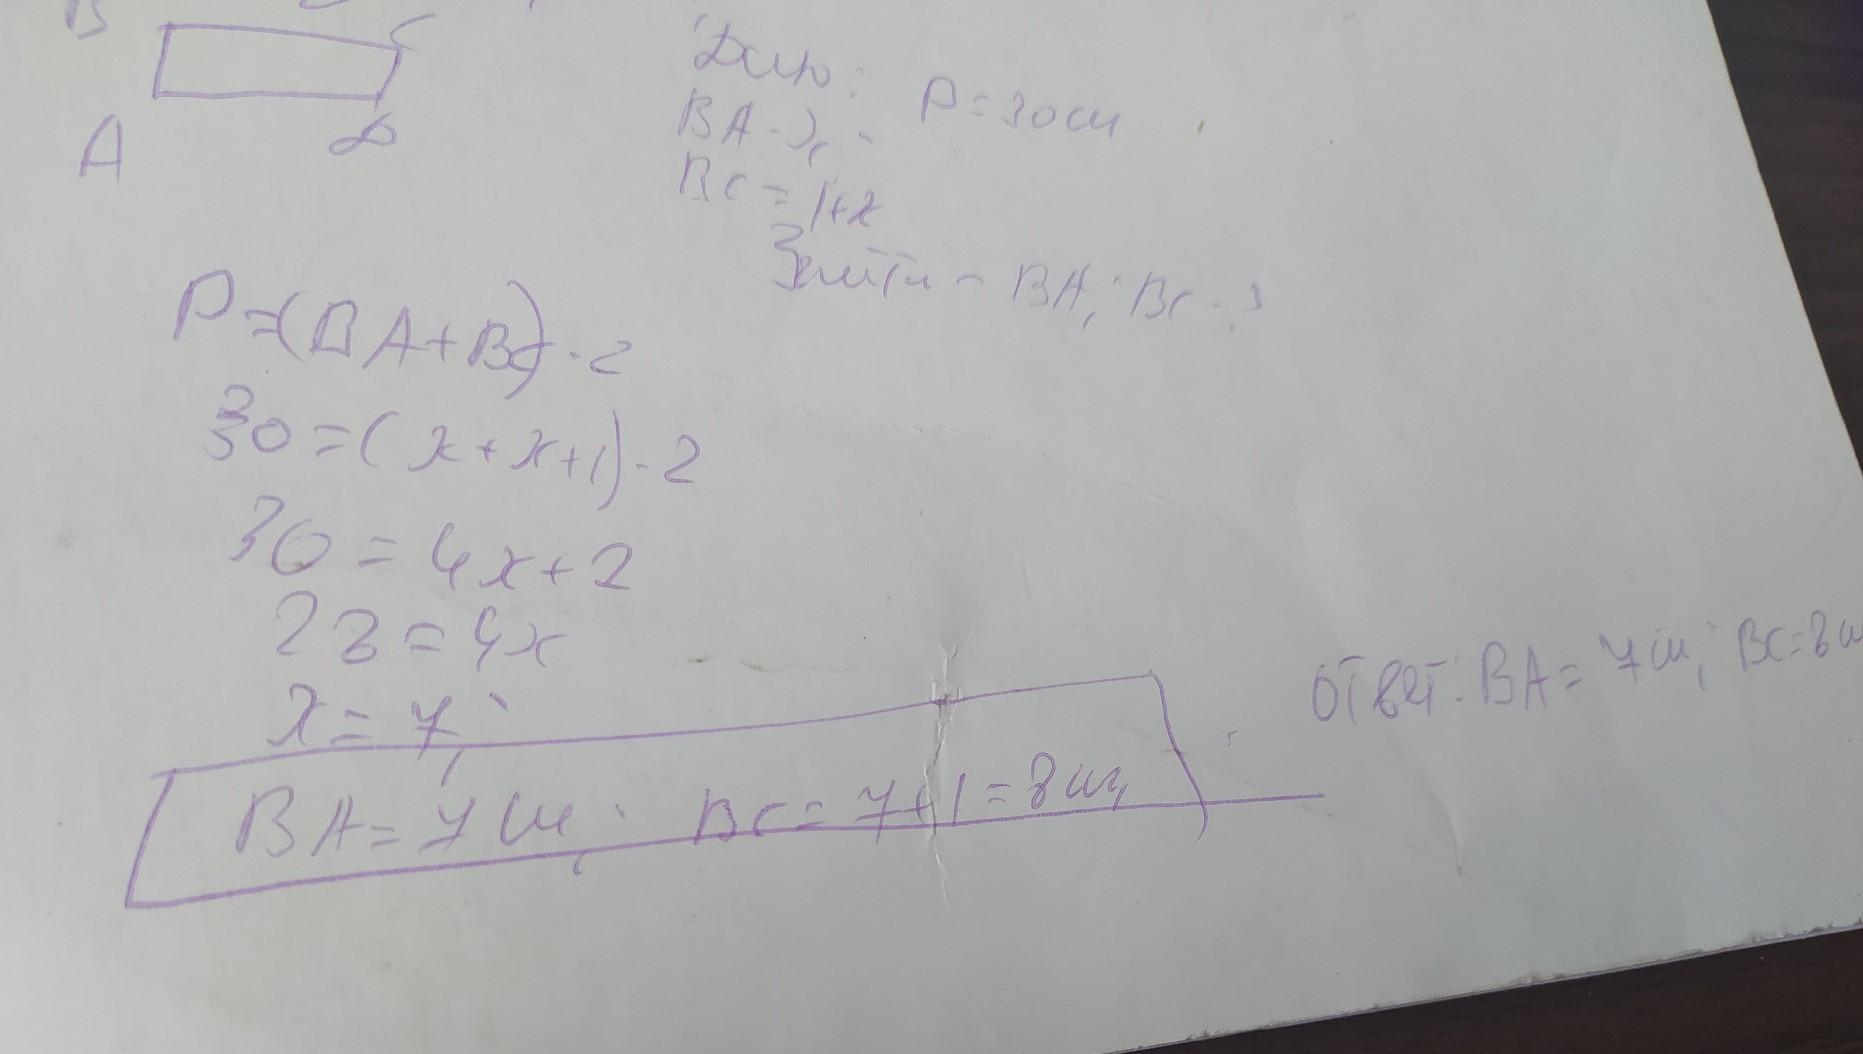 B C
A D
Дано: P=30см
BA - x
BC = 1+x
Знайти - BA; BC - ?
P=(BA+BC)·2
30=(x+x+1)·2
30=4x+2
28=4x
x=7;
BA=7см; BC=7+1=8см
Ответ: BA=7см; BC=8см